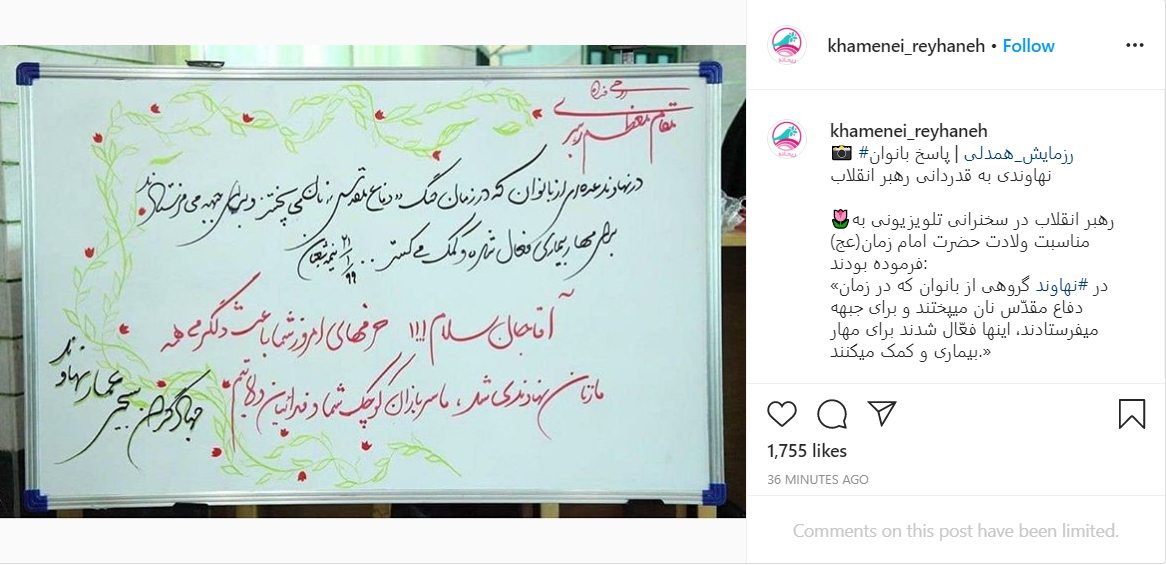 روحی فداه
مقام معظم رهبری
در نهاوند عده‌ای از بانوان که در زمان جنگ «دفاع مقدس» نان می پختند و برای جبهه می فرستادند
برای مهار بیماری فعال شده و کمک می کنند . . نیمه شعبان ۲۱/۱/۹۹
آقا جان سلام !!! حرفهای امروز شما باعث دلگرمی همه
ما زنان نهاوندی شد ، ما سربازان کوچک شما و فدائیان ولایتیم
جهادگران بسیجی
عمار نهاوند
ریحانه
khamenei_reyhaneh • Follow
ریحانه
khamenei_reyhaneh
📷 #رزمایش_همدلی | پاسخ بانوان
نهاوندی به قدردانی رهبر انقلاب
🌷رهبر انقلاب در سخنرانی تلویزیونی به
مناسبت ولادت حضرت امام زمان(عج)
فرموده بودند:
«در #نهاوند گروهی از بانوان که در زمان
دفاع مقدّس نان میپختند و برای جبهه
میفرستادند، اینها فعّال شدند برای مهار
بیماری و کمک میکنند.»
1,755 likes
36 MINUTES AGO
Comments on this post have been limited.